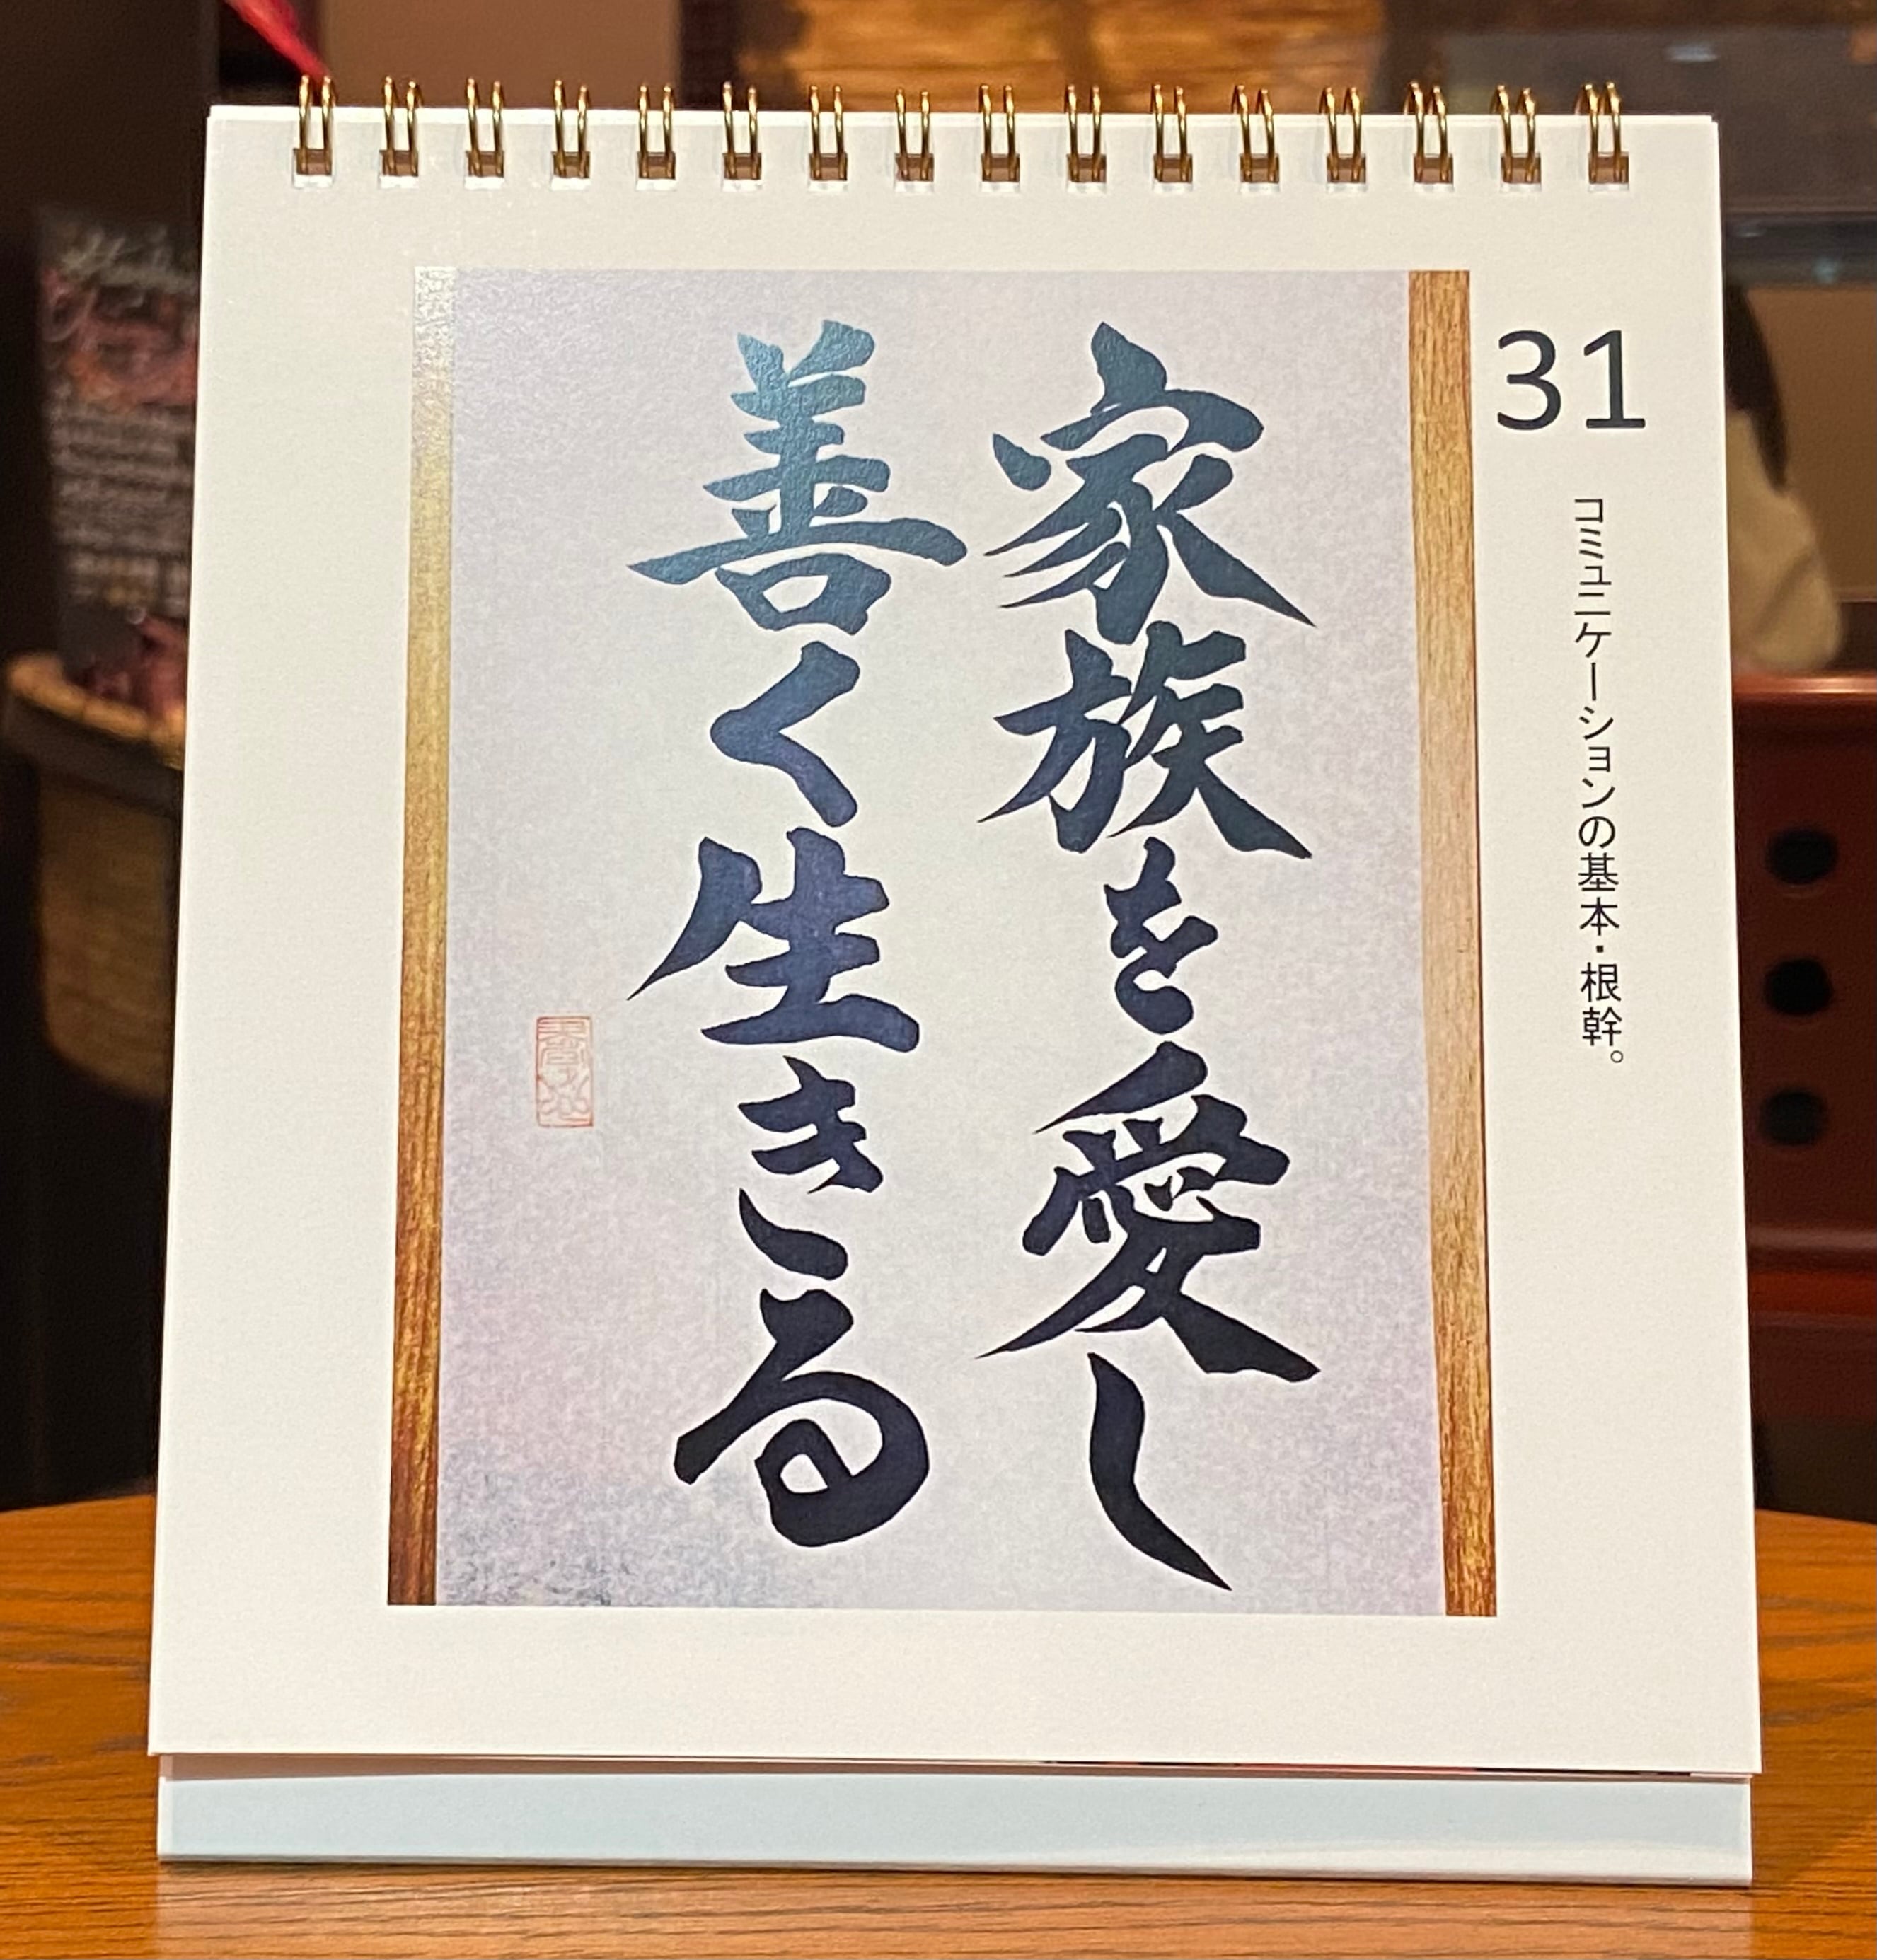 31
コミュニケーションの基本・根幹。
家族を愛し
善く生きる